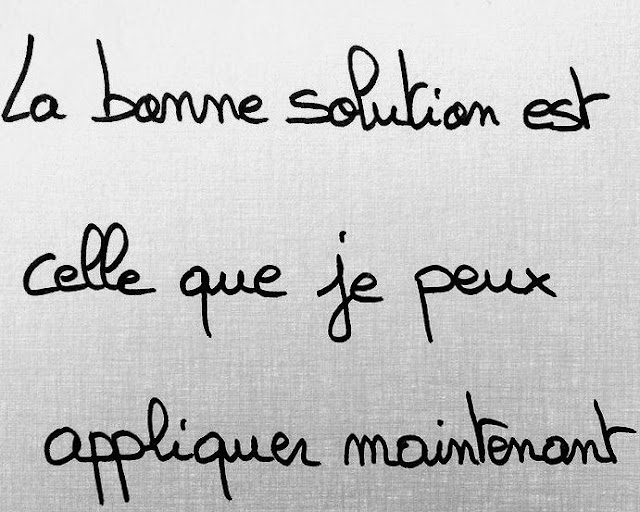 La bonne solution est
celle que je peux
appliquer maintenant